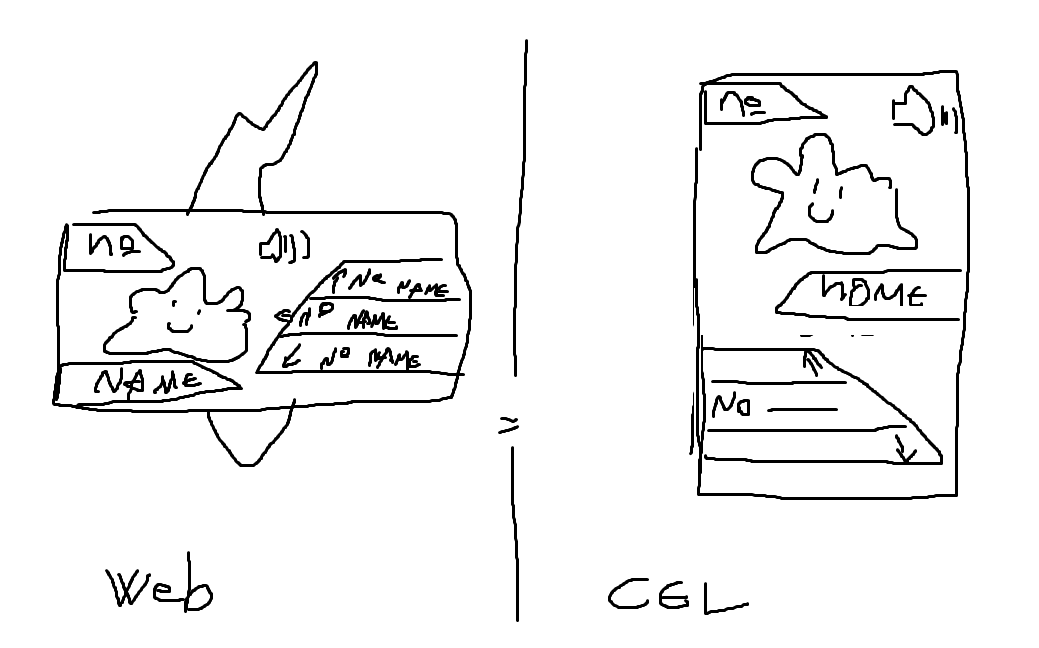 nº
↑ Nº NAME
← Nº NAME
↙ Nº NAME
NAME
Web
=
nº
NOME
Nº
CEL